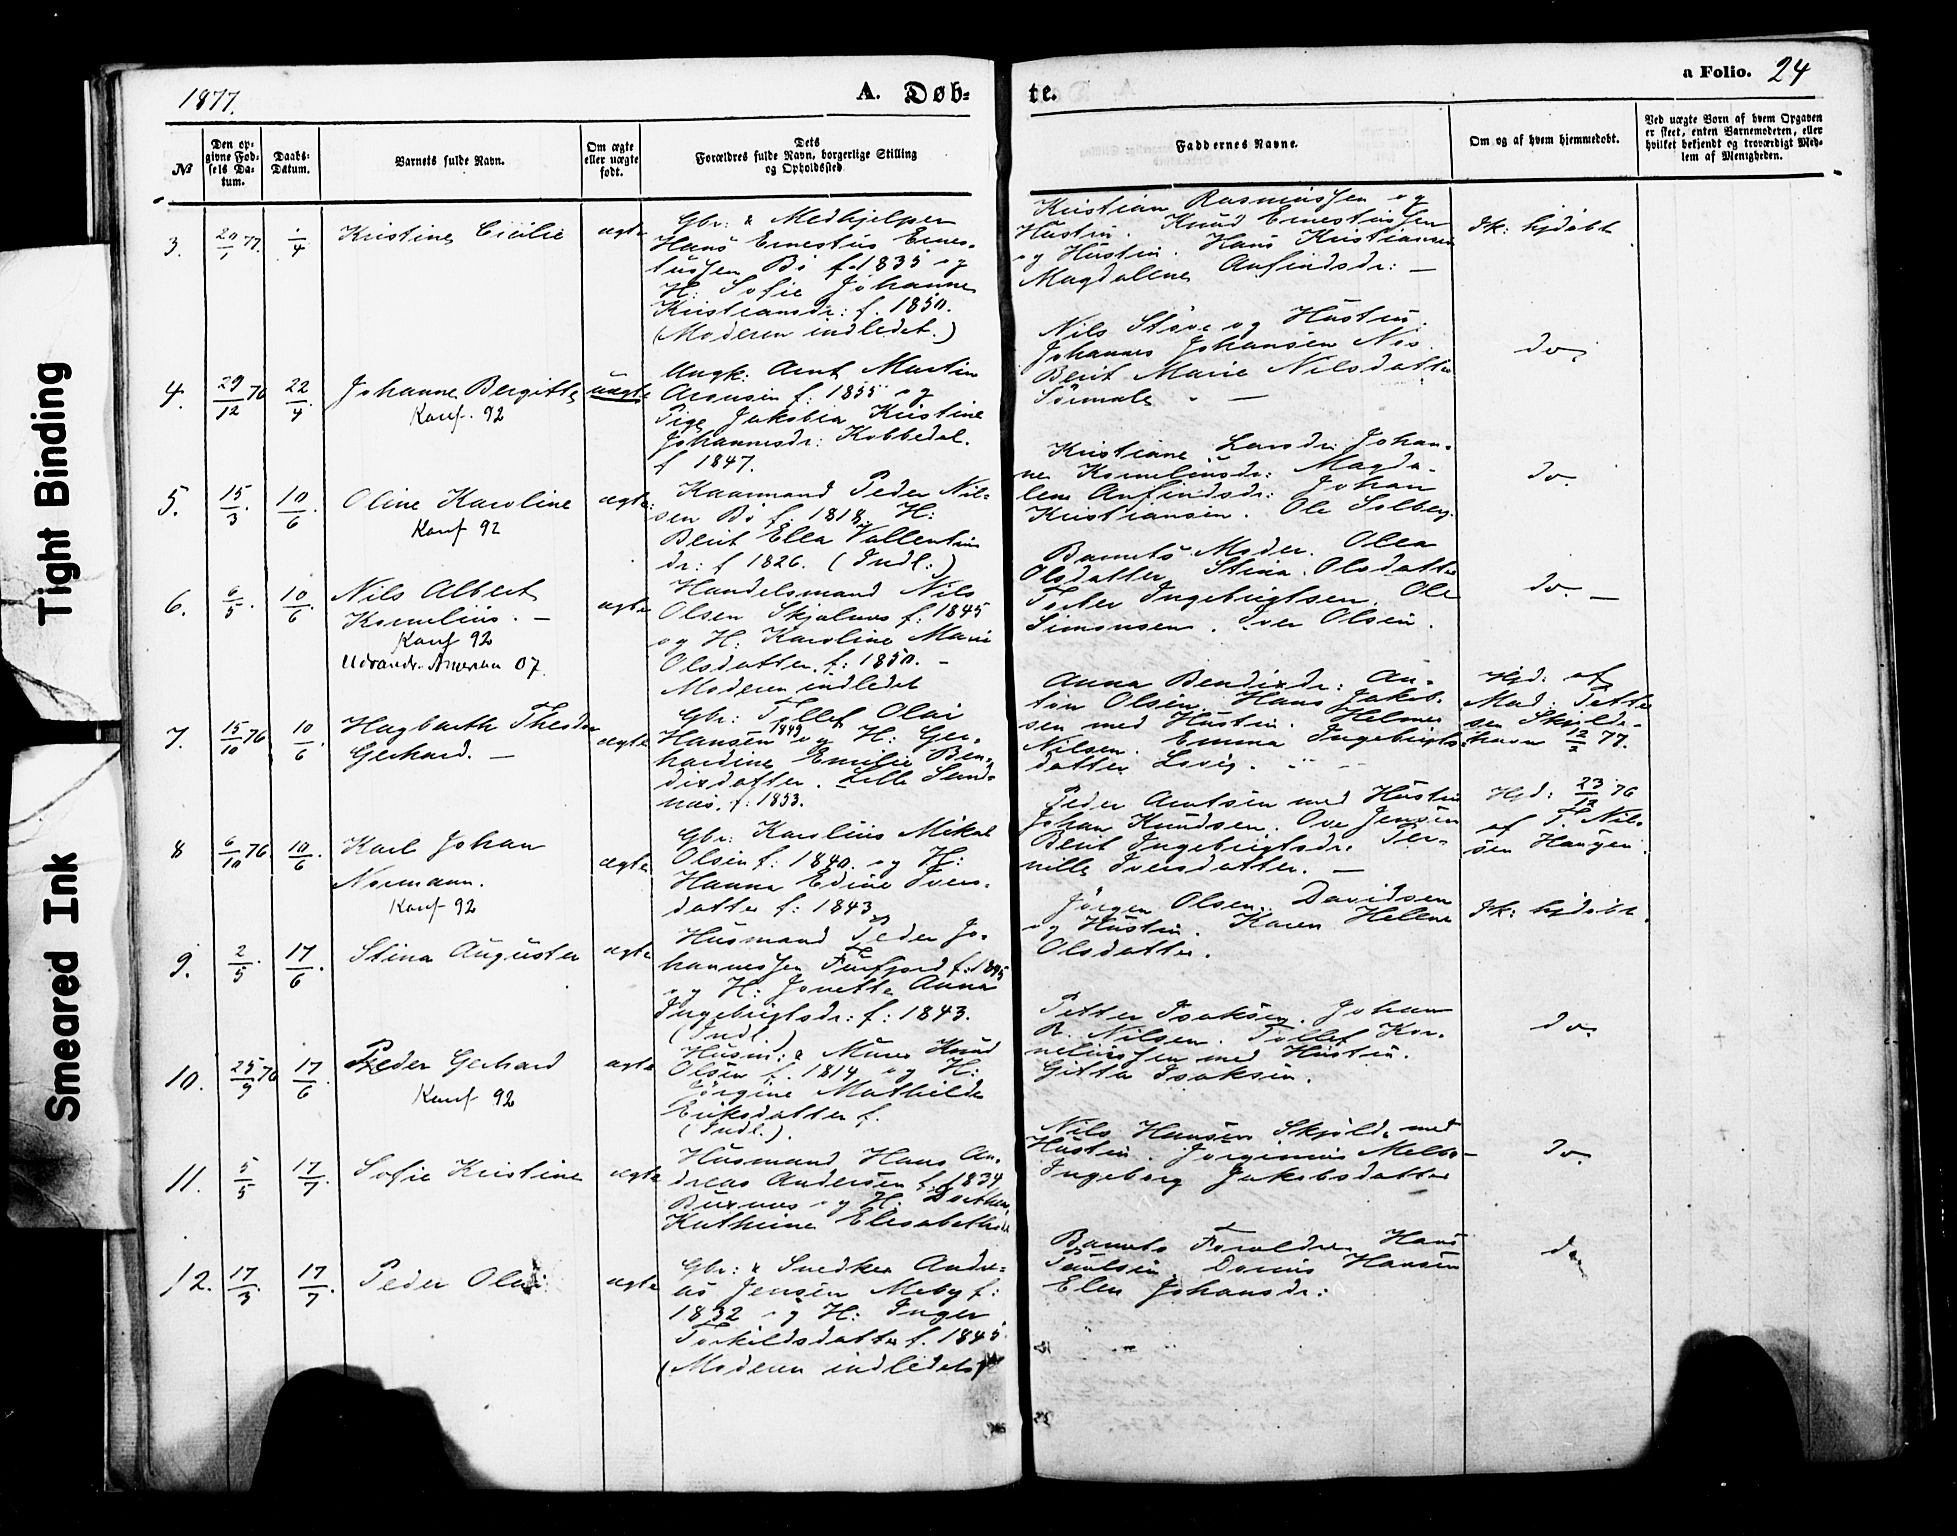 Tight Binding
Smeared Ink
1877.
A. Døb-
te.
a Folio. 24
№
Den op-
givne Fød-
sels Da-
tum.
Daabs-
Datum.
Barnets fulde Navn.
Om ægte
eller uægte
født.
Dets
Forældres fulde Navn, borgerlige Stilling
og Opholdssted
Faddernes Navne.
Om og af hvem hjemmedøbt.
Ved uægte Børn af hvem Opgaven
er skeet, enten Barnemoderen, eller
hvilket bekjendt og troværdigt Med-
lem af Menigheden.
3.
77.
/4
Kristine Cicilie
ægte
Gbr: & Medhjelper
Hans Ernestus Ernes-
tussen Bø f. 1835 og
H: Sofie Johanne
Kristiansdr: f. 1850.
(Moderen indledet.)
Kristian Rasmussen og
Hustru. Knud Ernestussen
og Hustru. Hans Kristiansen
Magdalene Anfindsdr: —
Ik: hjdøbt
4.
29/12 76
22/4
Johanne Bergitte
Konf. 92
uægte
Ungk: Arnt Martin
Aronsen f: 1855 og
Pige Jakobia Kristine
Johannesdr: Kobbedal.
f 1847.
Nils Støve og Hustru.
Johannes Johansen
Berit Marie Nilsdatter
Sørmale —
do.
5.
15/3.
10/6.
Oline Karoline
Konf 92
ægte
Kaarmand Peder Nil-
sen Bø f. 1818. H:
Berit Elea Vallentin
dr: f 1826. (Indl:)
Kristiane Larsdr: Johan-
ne Korneliusdr: Magda-
lene Anfindsdr: Johan
Kristiansen. Ole Solberg.
do
6.
6/5.
10/6.
Nils Albert
Kornelius. —
Konf 92
Udvandr. Amerika 07.
ægte
Handelsmand Nils
Olsen Skjolnes f: 1845
og H: Karoline Marie
Olsdatter. f: 1850. –
Moderen indledet
Barnets Moder. Olea
Olsdatter. Stina Olsdatter
Ingebrigtsen. Ole
Simonsen. Iver Olsen.
do. —
7.
15/10 76
10/6
Hagbarth Theodor
Gerhard. —
ægte
Gbr: Tollef Olai
Hansen 1849 og H: Ger-
hardine Emilie Ben-
dixdatter. Lille Sand-
nes. f: 1853.
Anna Bendixdr: An-
ton Olsen. Hans Jakob-
sen med Hustru. Helmer
Nilsen. Emma Ingebrigts-
datter Lovig.
Hjd: af
Mad: Petter
sen Skjold-
havn 12/2 77.
8
6/10 76.
10/6.
Karl Johan
Normann.
Konf 92
ægte
Gbr: Karolius Mikal
Olsen f: 1840. og H:
Hanna Edine Ivers-
datter f: 1843
Peder Arntsen med Hustru
Johan Knudsen. Ove Jensen
Berit Ingebrigtsdr: Per-
nille Iversdatter. —
Hjd: 23/12 76
af T. Nil-
sen Haugen.
9.
2/5.
17/6.
Stina Auguster
ægte
Husmand Peder Jo-
hannessen Furfjord f: 1845
og H: Jonette Anna
Ingebrigtsdr: f: 1843.
(Indl.)
Jørgen Olsen. Davidsen
og Hustru. Karen Hellene
Olsdatter.
Ik: hjdøbt.
10.
25/9 76
17/6
Peder Gerhard
Konf 92
ægte
Husmd: & Murer Knud
Olsen f. 1814 og H:
Jørgine Mathilde
Eriksdatter f.
(Indl.).
Petter Isaksen. Johan
R. Nilsen. Tollef Kor-
neliussen med Hustru.
Gitta Isaksen.
do.
11.
5/5
17/7.
Sofie Kristine
ægte
Husmand Hans An-
dreas Andersen f. 1834
Buxnes og H: Dorthea
Kathrine Elisabeths
Nils Hansen Skjold. med
Hustru. Jørginus Melbo —
Ingeborg Jakobsdatter
do.
12.
17/3.
17/7
Peder Olai
ægte
Gbr: & Snedker Andre-
as Jensen Meby f:
1832 og H: Inger
Torkildsdatter f. 1845
(Moderen indledet)
Barnets Forældre. Hans
Paulsen Dorius Hansen
Elen Johansdr:
do